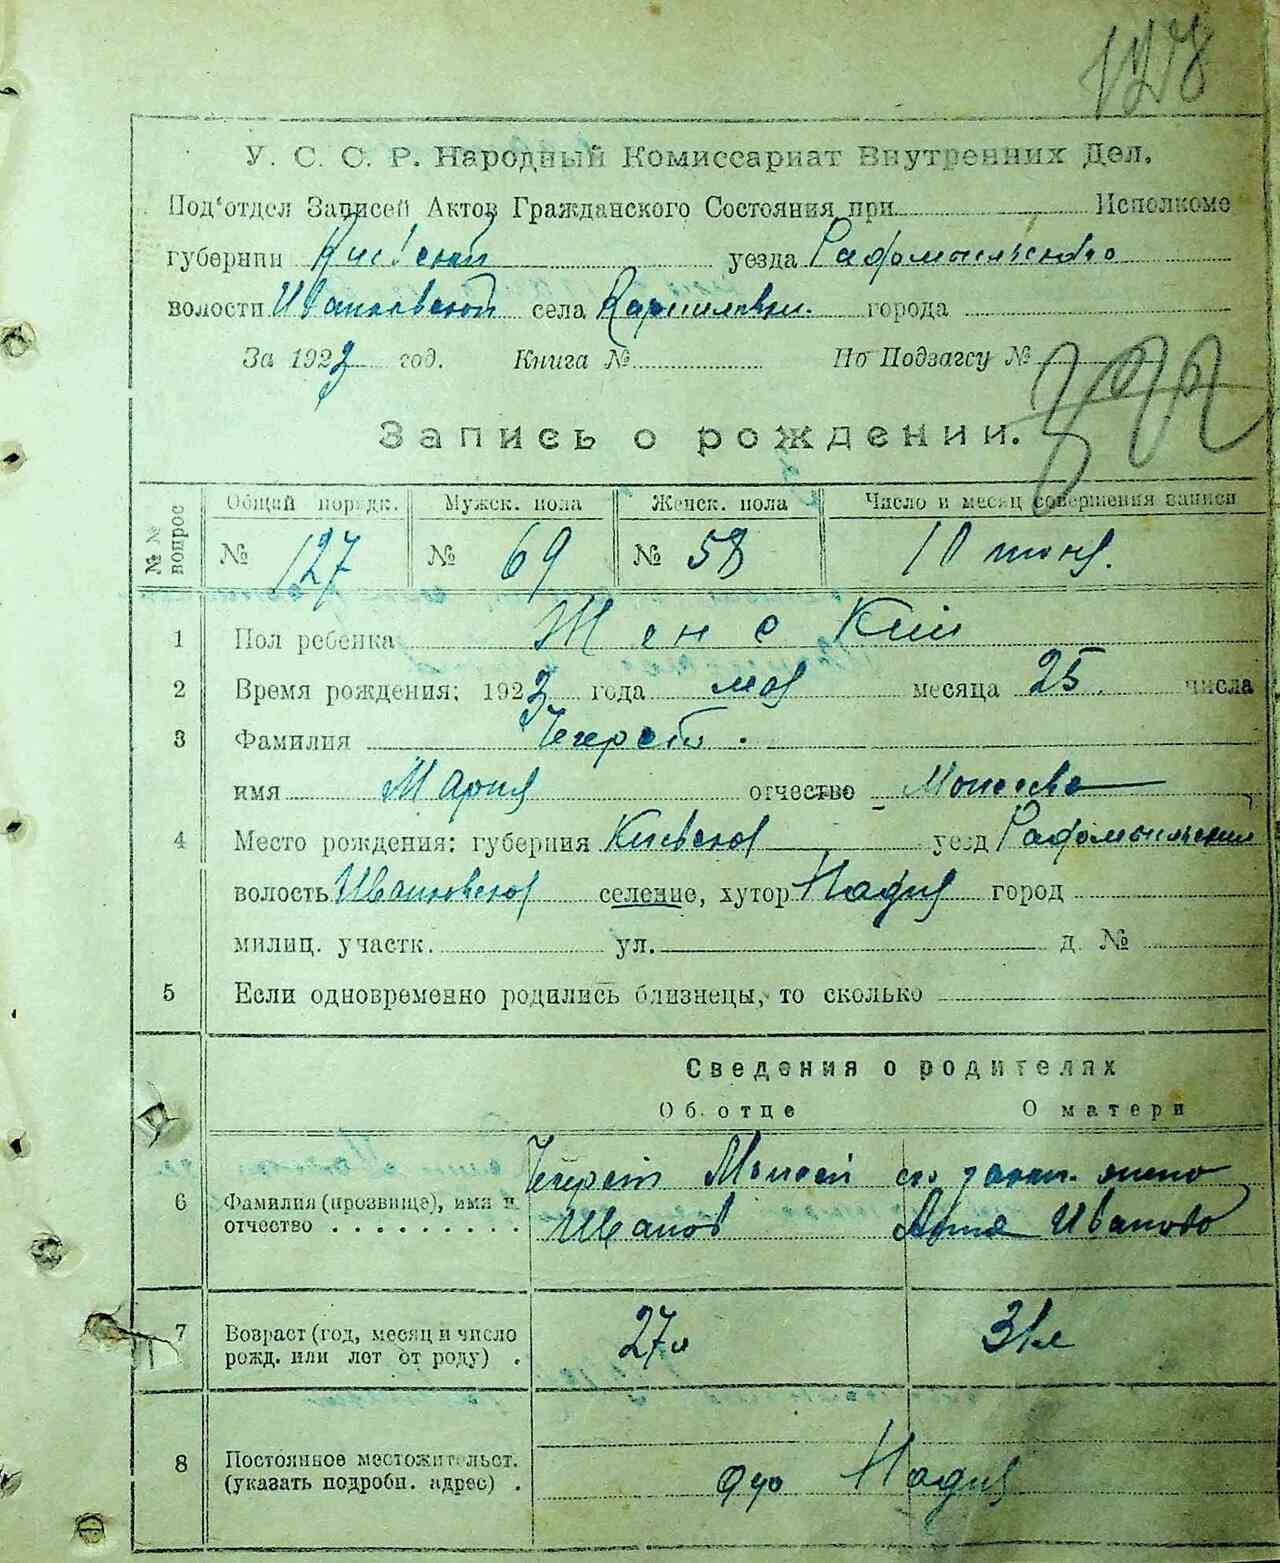 128
У. С. С. Р. Народный Комиссариат Внутренних Дел.
Под'отдел Записей Актов Гражданского Состояния при Исполкоме
губернии Киевской уезда Радомысльского
волости Иванковской села города
За 1923 год. Книга № По Подзагсу №
Запись о рождении.
№№ вопрос Общий порядк. Мужск. пола Женск. пола Число и месяц совершения записи
№ 127 № 69 № 58 10 июня.
1 Пол ребенка Женский
2 Время рождения: 1923 года мая месяца 25 числа
3 Фамилия
имя Мария отчество Моисеева
4 Место рождения: губерния Киевская уезд Радомысльский
волость Иванковская селение, хутор Надия город
милиц. участк. ул. д. №
5 Если одновременно родились близнецы, то сколько
Сведения о родителях
Об отце О матери
6 Фамилия (прозвище), имя и Моисей
отчество . . . . . . . . . Иванов Анна Иваново
7 Возраст (год, месяц и число 27 л 31 л
рожд. или лет от роду) .
8 Постоянное местожительст.
(указать подробн. адрес) . Надия